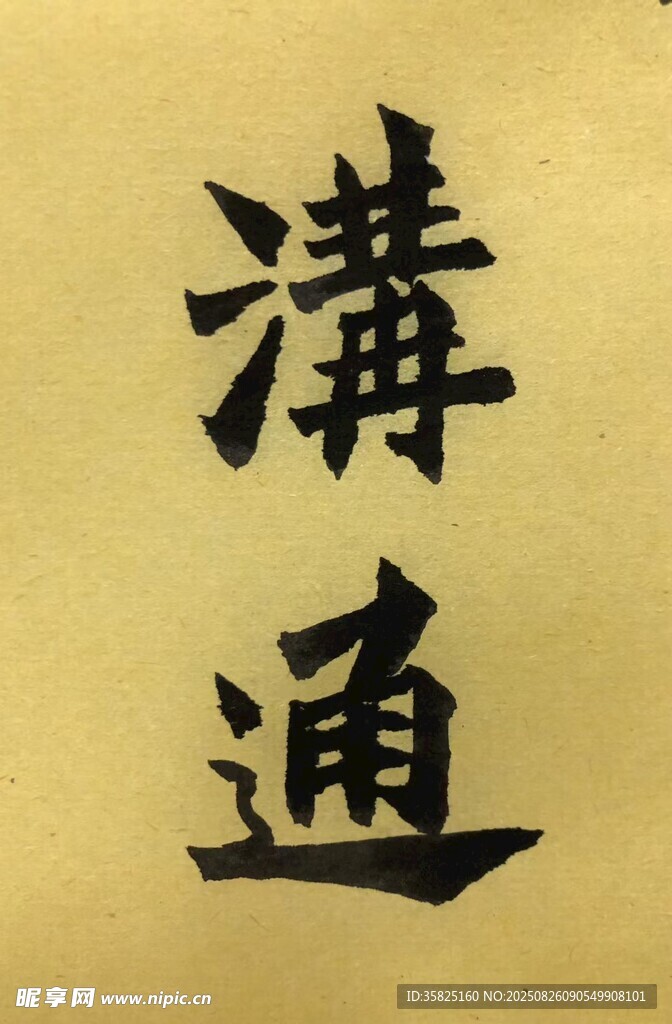 溝
通
昵享网 www.nipic.cn
ID:35825160 NO:20250826090549908101